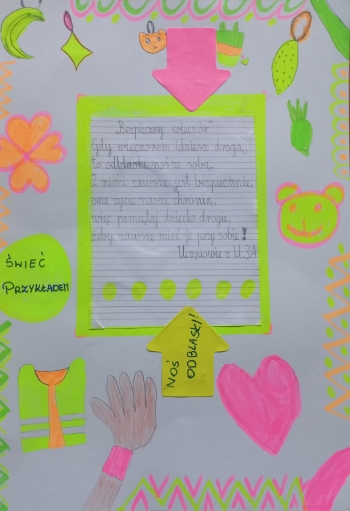 „Bezpieczny wieczór”
Gdy wieczorem idziesz drogą,
to odblaski noś ze sobą.
Z nimi zawsze jest bezpiecznie,
one życie nasze chronią,
więc pamiętaj dziecko drogie,
żeby zawsze mieć je przy sobie!
Uczniowie z kl. 3A
ŚWIEĆ
PRZYKŁADEM
NOŚ
ODBLASKI!